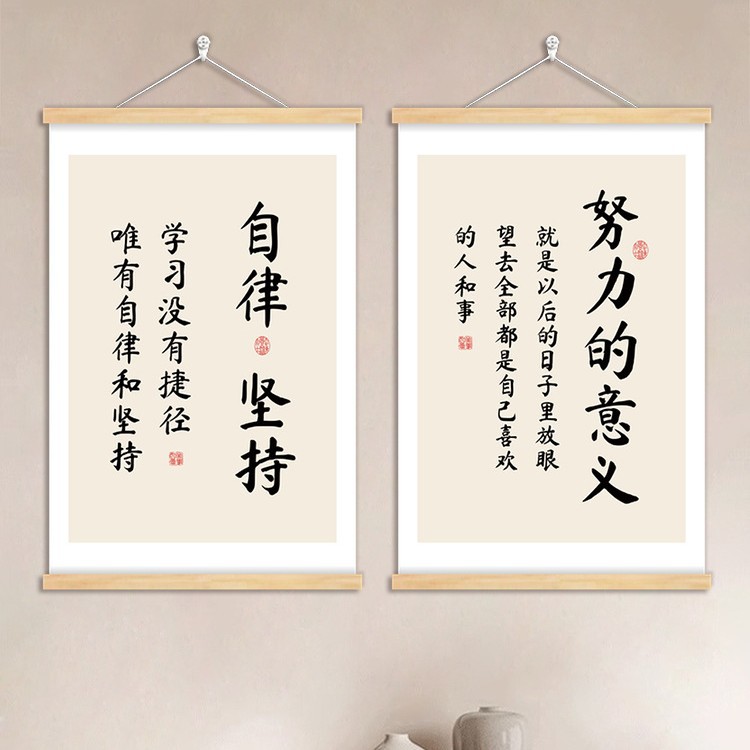 自律 坚持
学习没有捷径
唯有自律和坚持
努力的意义
就是以后的日子里放眼
望去全部都是自己喜欢
的人和事